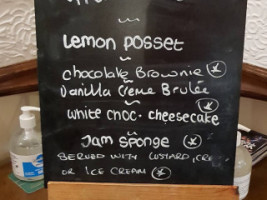 Lemon Posset
chocolate Brownie
Vanilla Creme Brulée
white choc. cheesecake
Jam Sponge
SERVED WITH CUSTARD, CRE
OR ICE CREAM